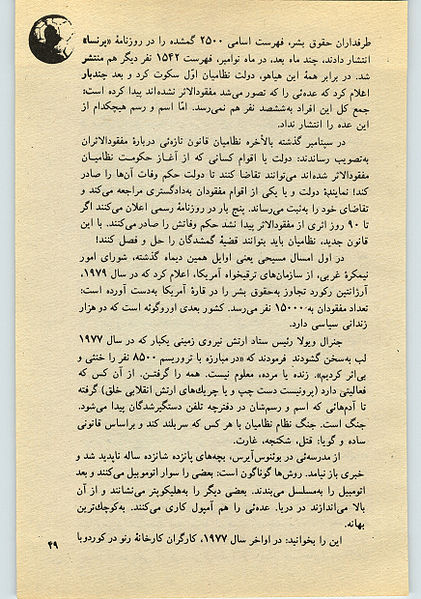 طرفداران حقوق بشر، فهرست اسامی ۲۵۰۰ گمشده را در روزنامهٔ «پرنسا»
انتشار دادند، چند ماه بعد، در ماه نوامبر، فهرست ۱۵۴۲ نفر دیگر هم منتشر
شد. در برابر همهٔ این هیاهو، دولت نظامیان اوّل سکوت کرد و بعد چندبار
اعلام کرد که عده‌ئی را که تصور می‌شد مفقودالاثر نشده‌اند پیدا کرده است:
جمع کل این افراد به‌ششصد نفر هم نمی‌رسد. امّا اسم و رسم هیچکدام از
این عده را انتشار نداد.
در سپتامبر گذشته بالأخره نظامیان قانون تازه‌ئی دربارهٔ مفقودالاثران
به‌تصویب رساندند: دولت یا اقوام کسانی که از آغاز حکومت نظامیان
مفقودالاثر شده‌اند می‌توانند تقاضا کنند تا دولت حکم وفات آن‌ها را صادر
کند! نمایندهٔ دولت و یا یکی از اقوام مفقودان به‌دادگستری مراجعه می‌کند و
تقاضای خود را به‌ثبت می‌رساند. پنج بار در روزنامهٔ رسمی اعلان می‌کنند اگر
تا ۹۰ روز اثری از مفقودالاثر پیدا نشد حکم وفاتش را صادر می‌کنند. با این
قانون جدید، نظامیان باید بتوانند قضیهٔ گمشدگان را حل و فصل کنند!
در اول امسال مسیحی یعنی اوایل همین دیماه گذشته، شورای امور
نیمکرهٔ غربی، از سازمان‌های ترقیخواه آمریکا، اعلام کرد که در سال ۱۹۷۹،
آرژانتین رکورد تجاوز به‌حقوق بشر را در قارهٔ آمریکا به‌دست آورده است:
تعداد مفقودان به‌۱۵۰۰۰ نفر می‌رسد. کشور بعدی اوروگوئه است که دو هزار
زندانی سیاسی دارد.
جنرال ویولا رئیس ستاد ارتش نیروی زمینی یکبار که در سال ۱۹۷۷
لب به‌سخن گشودند فرمودند که «در مبارزه با تروریسم ۸۵۰۰ نفر را خنثی و
بی‌اثر کردیم». زنده یا مرده، معلوم نیست. همه را گرفتند. از آن کس که
فعالیتی دارد (پرونیست دست چپ و یا چریك‌های ارتش انقلابی خلق) گرفته
تا آدم‌هائی که اسم و رسم‌شان در دفترچه تلفن دستگیرشدگان پیدا می‌شود.
جنگ است. جنگ نظام نظامیان با هر کس که سربلند کند و براساس قانونی
ساده و گویا: قتل، شکنجه، غارت.
از مدرسه‌ئی در بوئنوس‌آیرس، بچه‌های پانزده شانزده ساله ناپدید شد و
خبری باز نیامد. روش‌ها گوناگون است: بعضی را سوار اتوموبیل می‌کنند و بعد
اتومبیل را به‌مسلسل می‌بندند. بعضی دیگر را به‌هلیکوپتر می‌نشانند و از آن
بالا می‌اندازند در دریا. عده‌ئی را هم آمپول کاری می‌کنند. به‌کوچك‌ترین
بهانه.
این را بخوانید: در اواخر سال ۱۹۷۷، کارگران کارخانهٔ رنو در کوردوبا
۴۹